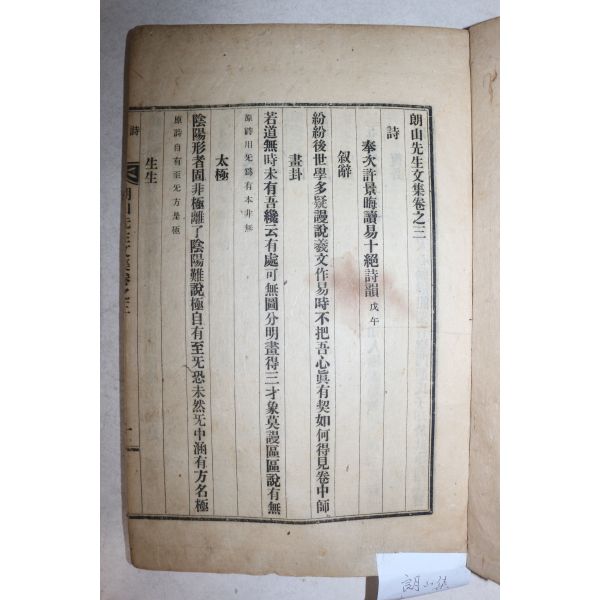 朗山先生文集卷之三
詩
奉次許景晦讀易十絕詩韻 戊午
叙辭
紛紛後世學多疑謾說羲文作易時不把吾心眞有契如何得見卷中師
畫卦
若道無時未有吾纔云有處可無圖分明畫得三才象莫謾區區說有無
原詩用旡爲有本非無
太極
陰陽形者固非極離了陰陽難說極自有至旡恐未然旡中涵有方名極
原詩自有至旡方是極
生生
詩
朗山先生文集卷之三
一